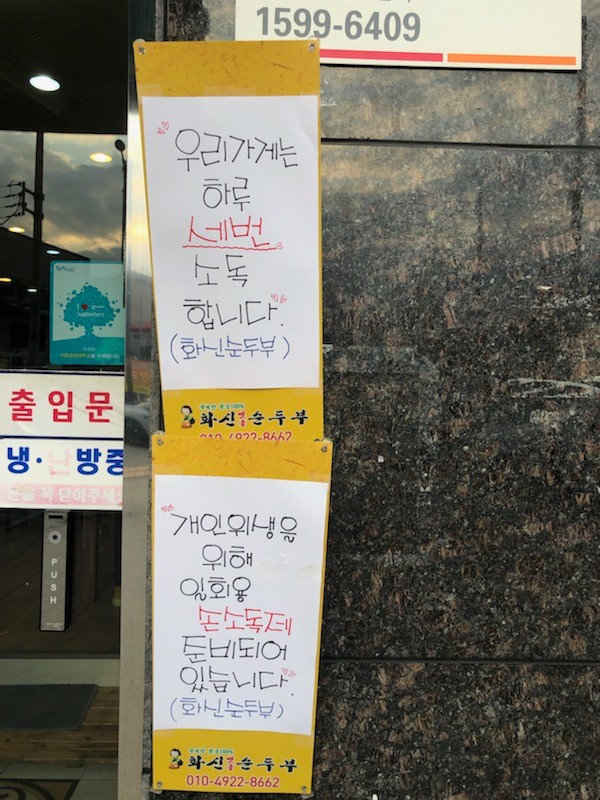 1599-6409
우리가게는
하루
세번
소독
합니다.
(화신순두부)
국내산 콩 100%
화신 순두부
010-4922-8662
I ♥
Supporters
출입문
냉·난방중
문을 꼭 닫아주세요
PUSH
개인위생을
위해
일회용
손소독제
준비되어
있습니다.
(화신순두부)
국내산 콩 100%
화신 순두부
010-4922-8662